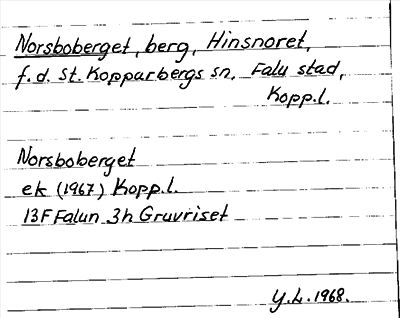 Norsboberget, berg, Hinsnoret,
f.d. St. Kopparbergs sn, Falu stad,
Kopp.l.
Norsboberget
ek (1967) Kopp.l.
13F Falun 3h Gruvriset
Y.L. 1968.